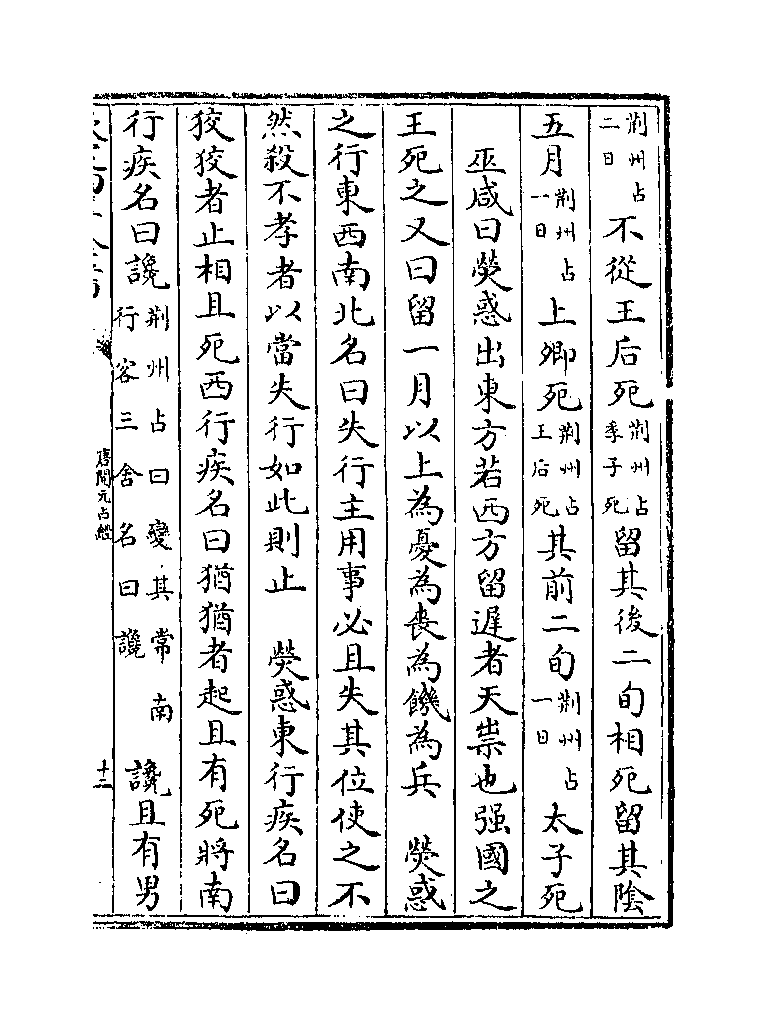 荆州占二日不從王后死荆州占季子死留其後二旬相死留其陰
五月荆州占一日上卿死荆州占王后死其前二旬荆州占一日太子死
巫咸曰熒惑出東方若西方留遲者天祟也强國之
王死之又曰留一月以上為憂為喪為饑為兵　熒惑
之行東西南北名曰失行主用事必且失其位使之不
然殺不孝者以當失行如此則止　熒惑東行疾名曰
狡狡者止相且死西行疾名曰猶猶者起且有死將南
行疾名曰讒荆州占曰變其常南行客三舍名曰讒讒且有男
唐開元占經
十二